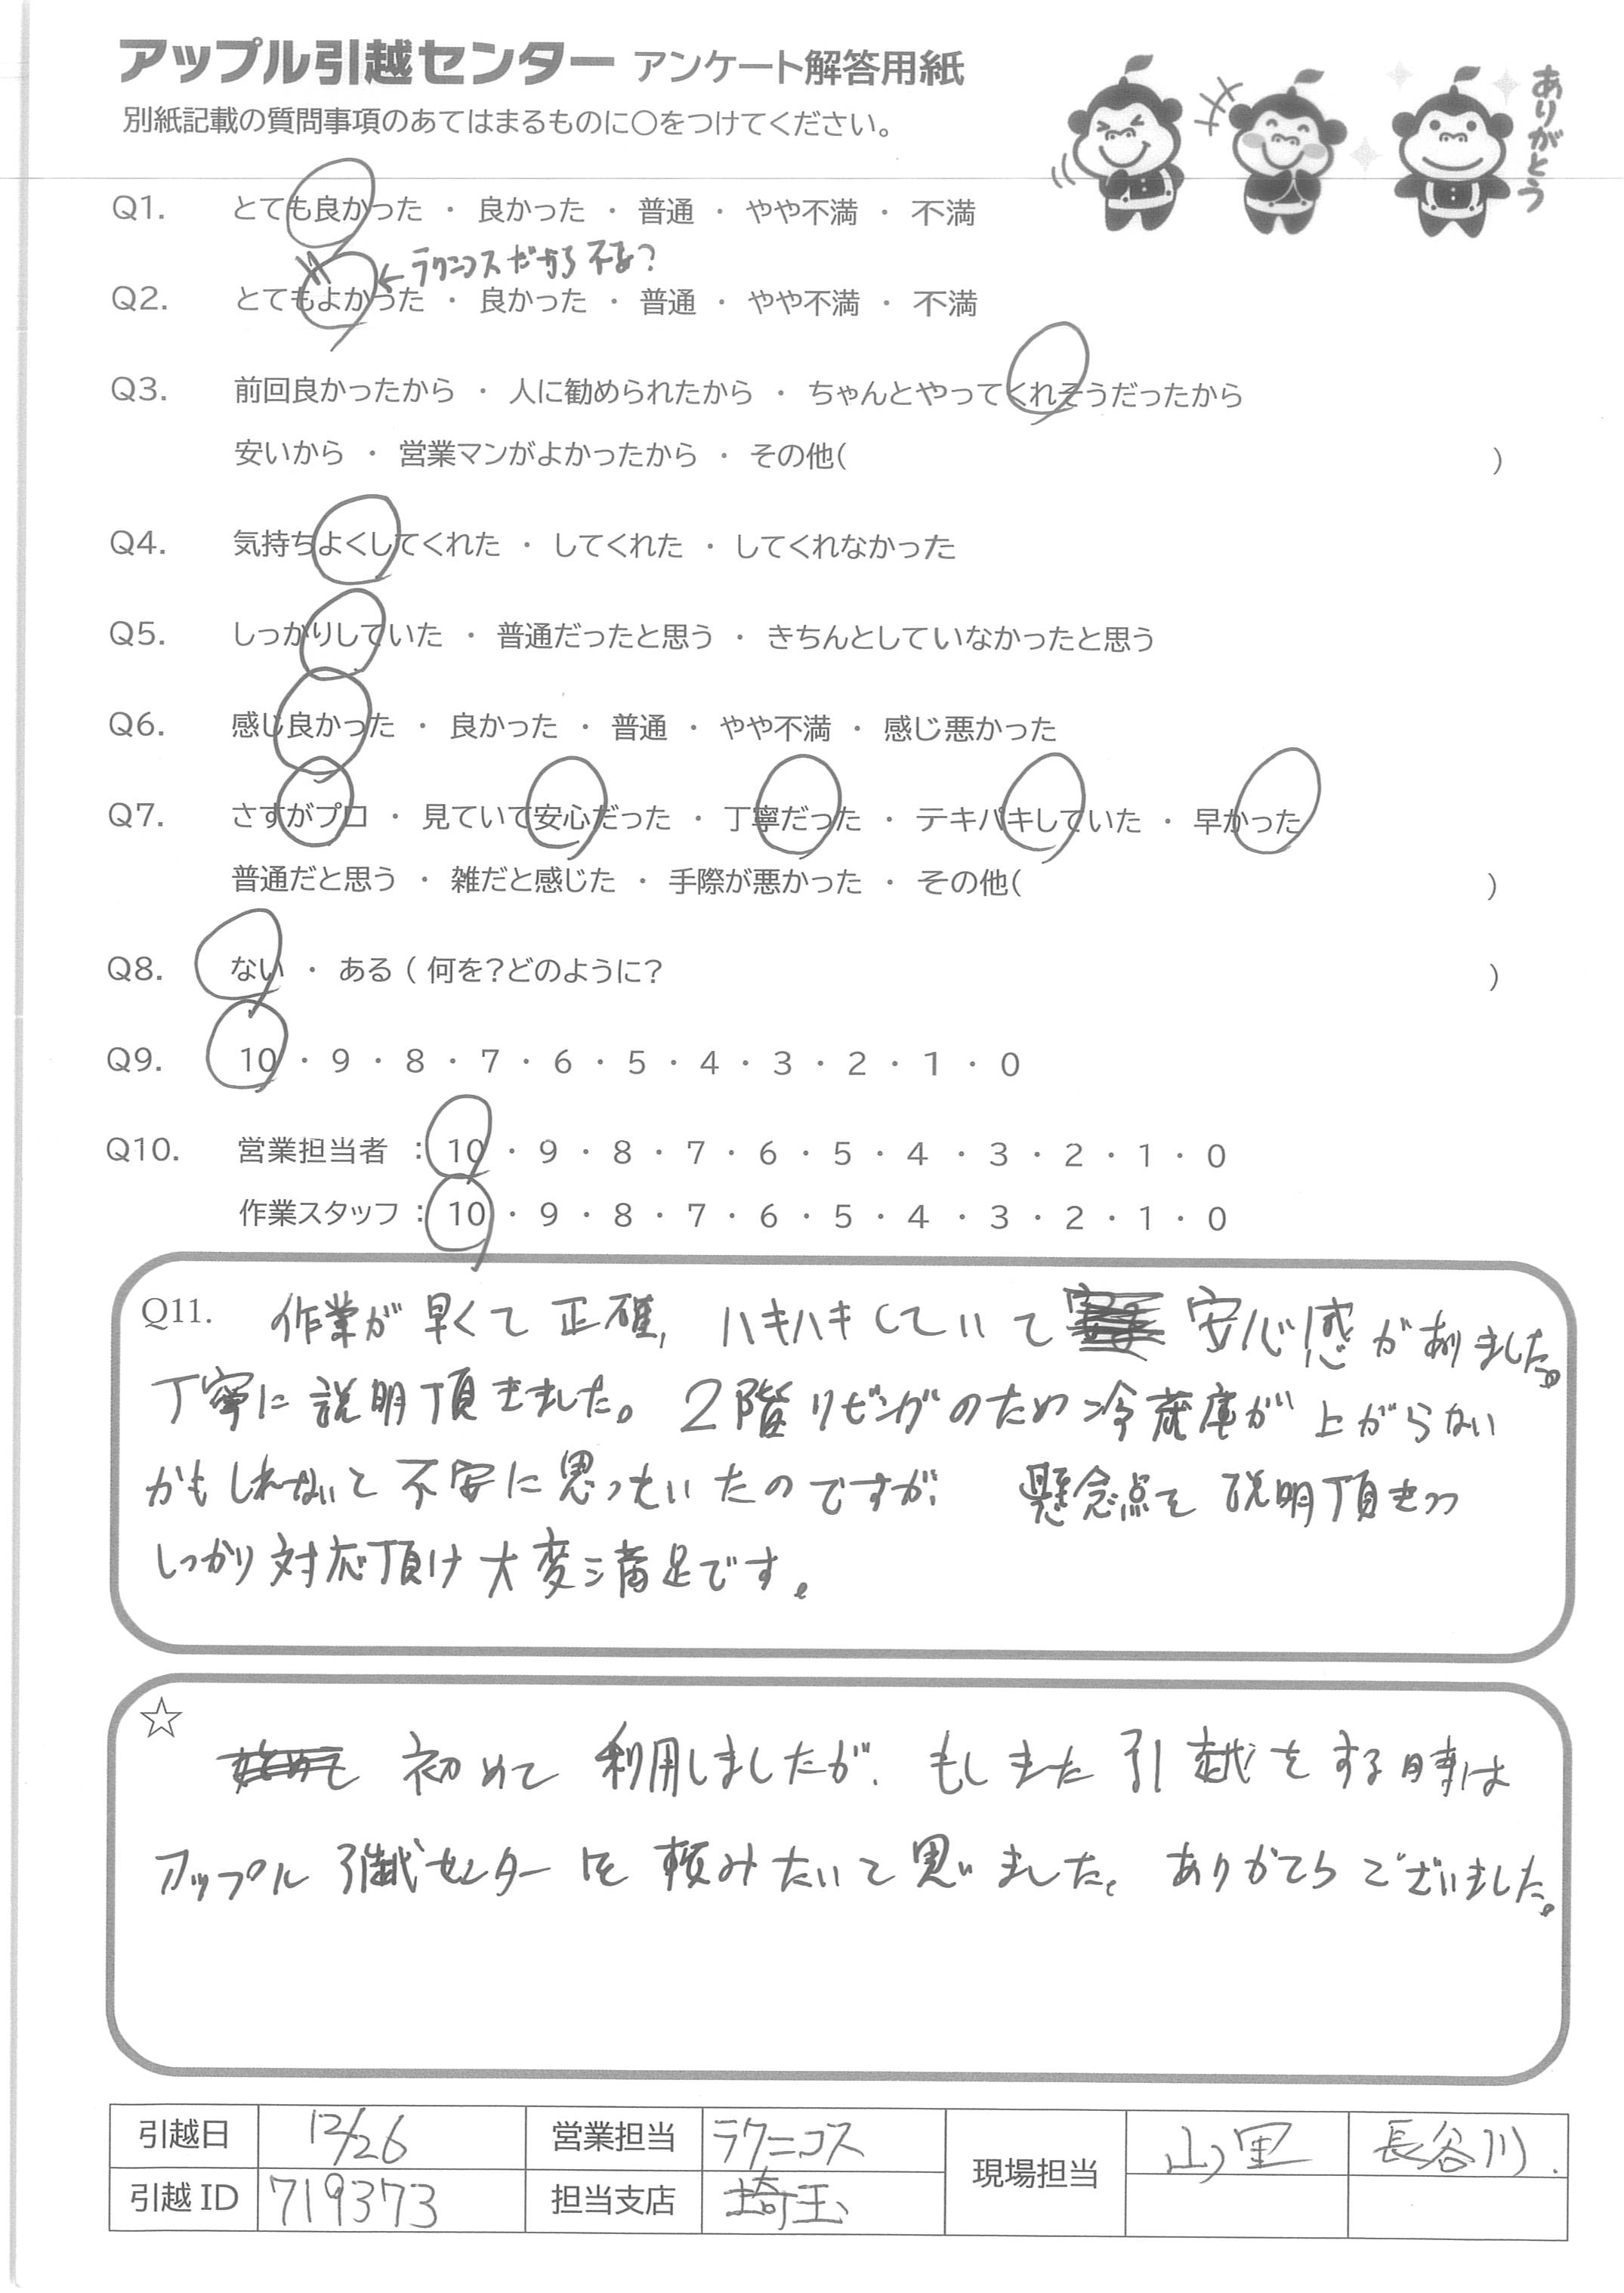 アップル引越センター アンケート解答用紙
別紙記載の質問事項のあてはまるものに〇をつけてください。
ありがとう
Q1. とても良かった ・ 良かった ・ 普通 ・ やや不満 ・ 不満
←ラクニコスだから不要?
Q2. とてもよかった ・ 良かった ・ 普通 ・ やや不満 ・ 不満
Q3. 前回良かったから ・ 人に勧められたから ・ ちゃんとやってくれそうだったから
安いから ・ 営業マンがよかったから ・ その他( )
Q4. 気持ちよくしてくれた ・ してくれた ・ してくれなかった
Q5. しっかりしていた ・ 普通だったと思う ・ きちんとしていなかったと思う
Q6. 感じ良かった ・ 良かった ・ 普通 ・ やや不満 ・ 感じ悪かった
Q7. さすがプロ ・ 見ていて安心だった ・ 丁寧だった ・ テキパキしていた ・ 早かった
普通だと思う ・ 雑だと感じた ・ 手際が悪かった ・ その他( )
Q8. ない ・ ある ( 何を?どのように? )
Q9. 10 ・ 9 ・ 8 ・ 7 ・ 6 ・ 5 ・ 4 ・ 3 ・ 2 ・ 1 ・ 0
Q10. 営業担当者 : 10 ・ 9 ・ 8 ・ 7 ・ 6 ・ 5 ・ 4 ・ 3 ・ 2 ・ 1 ・ 0
作業スタッフ : 10 ・ 9 ・ 8 ・ 7 ・ 6 ・ 5 ・ 4 ・ 3 ・ 2 ・ 1 ・ 0
Q11. 作業が早くて正確、ハキハキしていて 安心感がありました。
丁寧に説明頂きました。2階リビングのため冷蔵庫が上がらない
かもしれないと不安に思っていたのですが、懸念点を説明頂きつつ
しっかり対応頂け大変満足です。
☆
初めて利用しましたが、もしまた引越をする時は
アップル引越センターを頼みたいと思いました。ありがとうございました。
引越日 12/26 営業担当 ラクニコス 現場担当 山里 長谷川
引越ID 719373 担当支店 埼玉